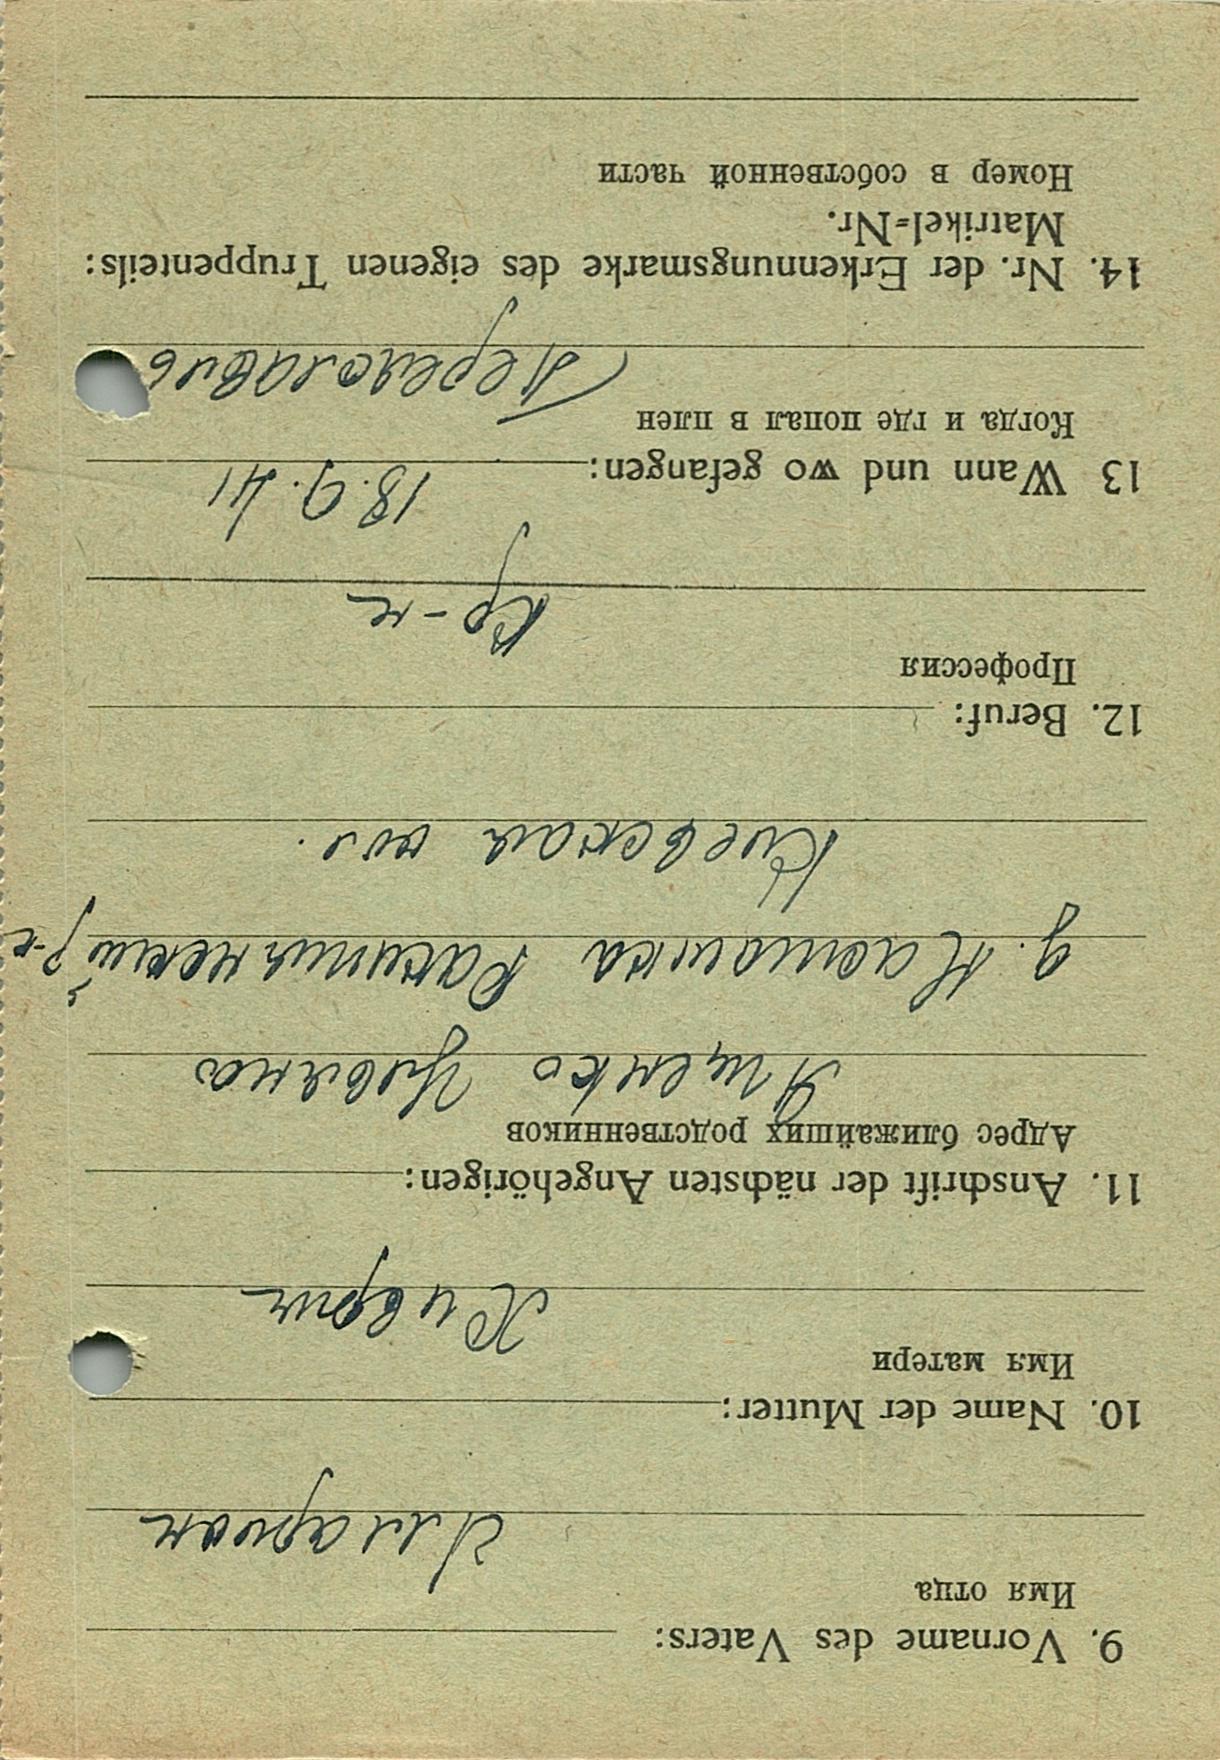 9. Vorname des Vaters:
Имя отца
10. Name der Mutter:
Имя матери
11. Anschrift der nächsten Angehörigen:
Адрес ближайших родственников
Ященко
д. Насташка Ракитянский р-н
Киевская обл.
12. Beruf:
Профессия
Кр-н
13 Wann und wo gefangen:
18.9.41
Когда и где попал в плен
14. Nr. der Erkennungsmarke des eigenen Truppenteils:
Matrikel=Nr.
Номер в собственной части